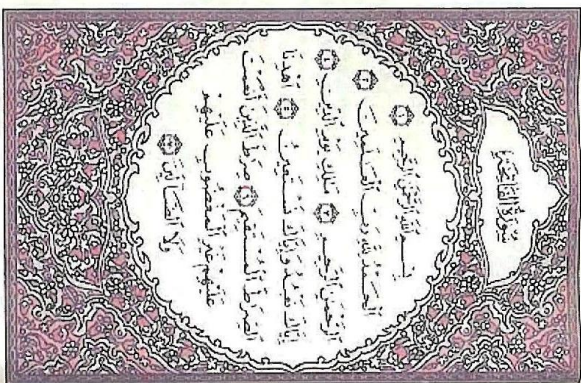 سورة الفاتحة
بسم الله الرحمن الرحيم ١
الحمد لله رب العلمين ٢
الرحمن الرحيم ٣ ملك يوم الدين ٤
إياك نعبد وإياك نستعين ٥ اهدنا
الصرط المستقيم ٦ صرط الذين أنعمت
عليهم غير المغضوب عليهم
ولا الضالين ٧